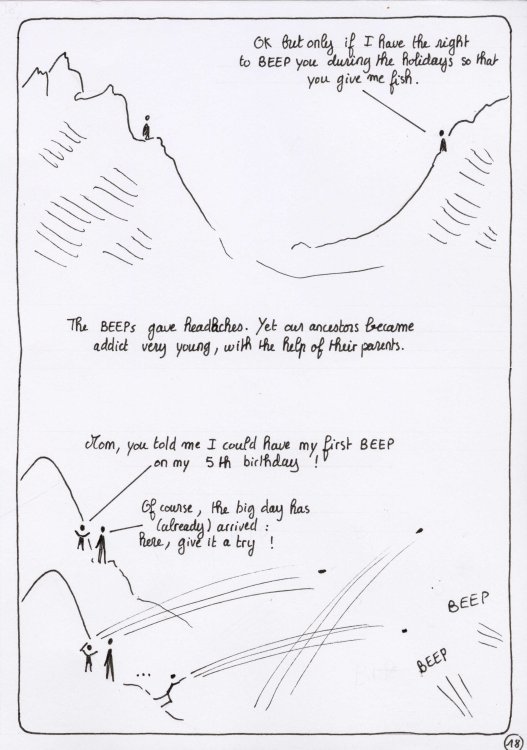 OK but only if I have the right
to BEEP you during the holidays so that
you give me fish.
The BEEPs gave headaches. Yet our ancestors became
addict very young, with the help of their parents.
Mom, you told me I could have my first BEEP
on my 5th birthday !
Of course, the big day has
(already) arrived :
here, give it a try !
...
BEEP
BEEP
18